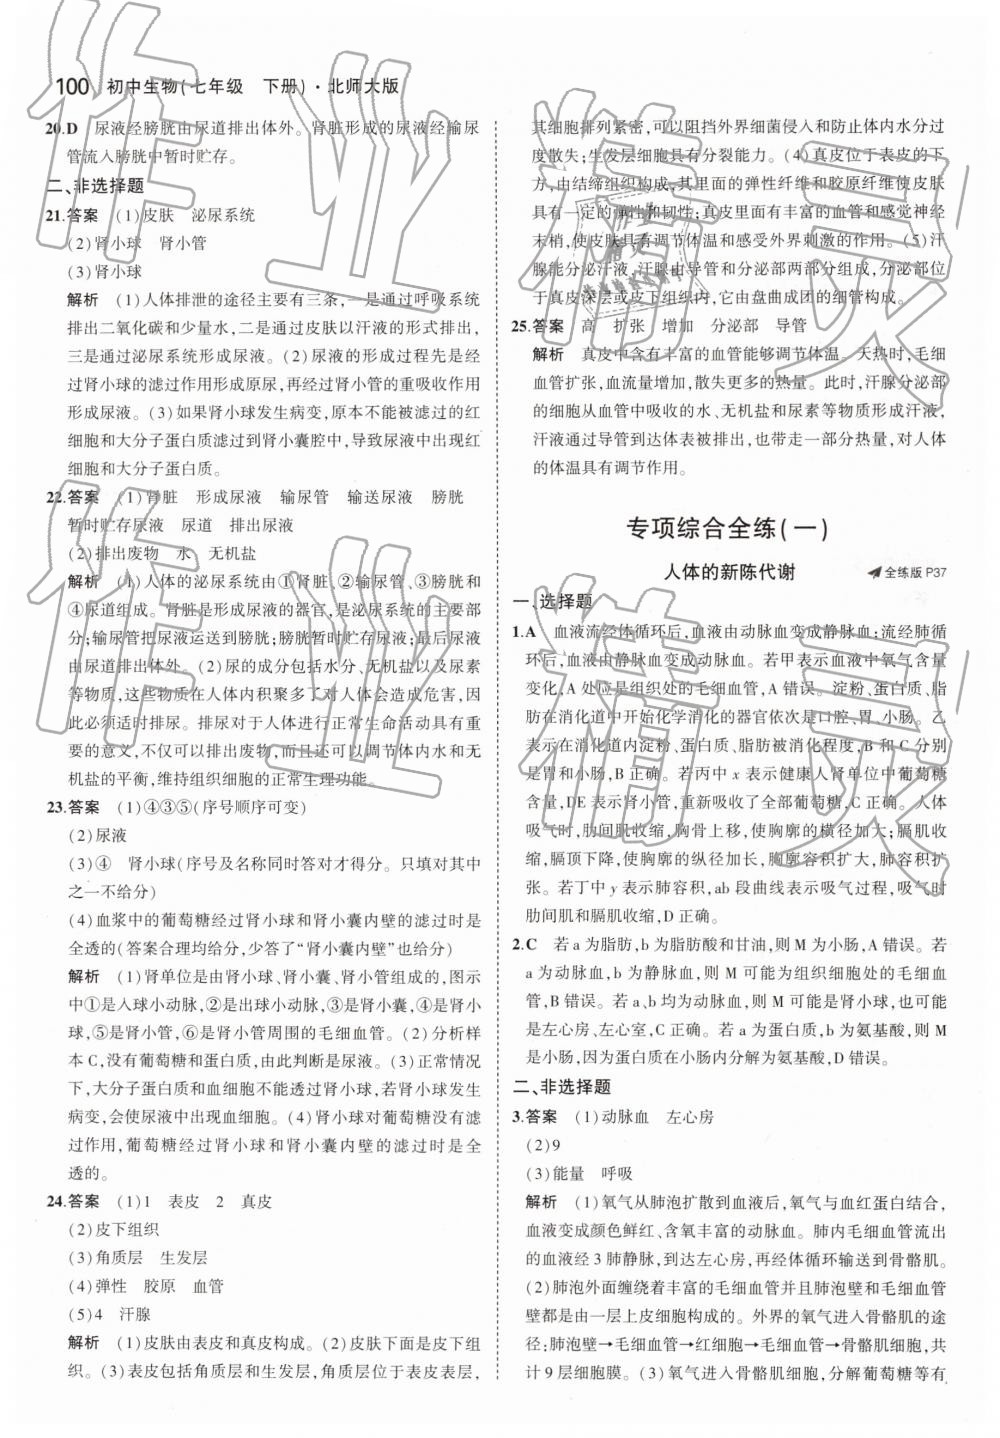 100 初中生物(七年级 下册)·北师大版
20.D 尿液经膀胱由尿道排出体外。肾脏形成的尿液经输尿
管流入膀胱中暂时贮存。
二、非选择题
21.答案 (1)皮肤 泌尿系统
(2)肾小球 肾小管
(3)肾小球
解析 (1)人体排泄的途径主要有三条,一是通过呼吸系统
排出二氧化碳和少量水,二是通过皮肤以汗液的形式排出,
三是通过泌尿系统形成尿液。(2)尿液的形成过程先是经
过肾小球的滤过作用形成原尿,再经过肾小管的重吸收作用
形成尿液。(3)如果肾小球发生病变,原本不能被滤过的红
细胞和大分子蛋白质滤过到肾小囊腔中,导致尿液中出现红
细胞和大分子蛋白质。
22.答案 (1)肾脏 形成尿液 输尿管 输送尿液 膀胱
暂时贮存尿液 尿道 排出尿液
(2)排出废物 水 无机盐
解析 (1)人体的泌尿系统由①肾脏,②输尿管、③膀胱和
④尿道组成。肾脏是形成尿液的器官,是泌尿系统的主要部
分;输尿管把尿液运送到膀胱;膀胱暂时贮存尿液;最后尿液
由尿道排出体外。(2)尿的成分包括水分、无机盐以及尿素
等物质,这些物质在人体内积聚多了对人体会造成危害,因
此必须适时排尿。排尿对于人体进行正常生命活动具有重
要的意义,不仅可以排出废物,而且还可以调节体内水和无
机盐的平衡,维持组织细胞的正常生理功能。
23.答案 (1)④③⑤(序号顺序可变)
(2)尿液
(3)④ 肾小球(序号及名称同时答对才得分。只填对其中
之一不给分)
(4)血浆中的葡萄糖经过肾小球和肾小囊内壁的滤过时是
全透的(答案合理均给分,少答了“肾小囊内壁”也给分)
解析 (1)肾单位是由肾小球、肾小囊、肾小管组成的,图示
中①是入球小动脉,②是出球小动脉,③是肾小囊,④是肾小
球,⑤是肾小管,⑥是肾小管周围的毛细血管。(2)分析样
本C,没有葡萄糖和蛋白质,由此判断是尿液。(3)正常情况
下,大分子蛋白质和血细胞不能透过肾小球,若肾小球发生
病变,会使尿液中出现血细胞。(4)肾小球对葡萄糖没有滤
过作用,葡萄糖经过肾小球和肾小囊内壁的滤过时是全
透的。
24.答案 (1)1 表皮 2 真皮
(2)皮下组织
(3)角质层 生发层
(4)弹性 胶原 血管
(5)4 汗腺
解析 (1)皮肤由表皮和真皮构成。(2)皮肤下面是皮下组
织。(3)表皮包括角质层和生发层,角质层位于表皮表层,
其细胞排列紧密,可以阻挡外界细菌侵入和防止体内水分过
度散失;生发层细胞具有分裂能力。(4)真皮位于表皮的下
方,由结缔组织构成,其里面的弹性纤维和胶原纤维使皮肤
具有一定的弹性和韧性;真皮里面有丰富的血管和感觉神经
末梢,使皮肤具有调节体温和感受外界刺激的作用。(5)汗
腺能分泌汗液,汗腺由导管和分泌部两部分组成,分泌部位
于真皮深层或皮下组织内,它由盘曲成团的细管构成。
25.答案 高 扩张 增加 分泌部 导管
解析 真皮中含有丰富的血管能够调节体温。天热时,毛细
血管扩张,血流量增加,散失更多的热量。此时,汗腺分泌部
的细胞从血管中吸收的水、无机盐和尿素等物质形成汗液,
汗液通过导管到达体表被排出,也带走一部分热量,对人体
的体温具有调节作用。
专项综合全练(一)
人体的新陈代谢 全练版 P37
一、选择题
1.A 血液流经体循环后,血液由动脉血变成静脉血;流经肺循
环后,血液由静脉血变成动脉血。若甲表示血液中氧气含量
变化,A处应是组织处的毛细血管,A错误。淀粉、蛋白质、脂
肪在消化道中开始化学消化的器官依次是口腔、胃、小肠。乙
表示在消化道内淀粉、蛋白质、脂肪被消化程度,B和C分别
是胃和小肠,B正确。若丙中x表示健康人肾单位中葡萄糖
含量,DE表示肾小管,重新吸收了全部葡萄糖,C正确。人体
吸气时,肋间肌收缩,胸骨上移,使胸廓的横径加大;膈肌收
缩,膈顶下降,使胸廓的纵径加大,胸廓容积扩大,肺容积扩
张。若丁中y表示肺容积,ab段曲线表示吸气过程,吸气时
肋间肌和膈肌收缩,D正确。
2.C 若a为脂肪,b为脂肪酸和甘油,则M为小肠,A错误。若
a为动脉血,b为静脉血,则M可能为组织细胞处的毛细血
管,B错误。若a、b均为动脉血,则M可能是肾小球,也可能
是左心房、左心室,C正确。若a为蛋白质,b为氨基酸,则M
是小肠,因为蛋白质在小肠内分解为氨基酸,D错误。
二、非选择题
3.答案 (1)动脉血 左心房
(2)9
(3)能量 呼吸
解析 (1)氧气从肺泡扩散到血液后,氧气与血红蛋白结合,
血液变成颜色鲜红、含氧丰富的动脉血。肺内毛细血管流出
的血液经3肺静脉,到达左心房,再经体循环输送到骨骼肌。
(2)肺泡外面缠绕着丰富的毛细血管并且肺泡壁和毛细血管
壁都是由一层上皮细胞构成的。外界的氧气进入骨骼肌的途
径:肺泡壁→毛细血管→红细胞→毛细血管→骨骼肌细胞,共
计9层细胞膜。(3)氧气进入骨骼肌细胞后,分解葡萄糖等有
作业
精灵
作业
精灵